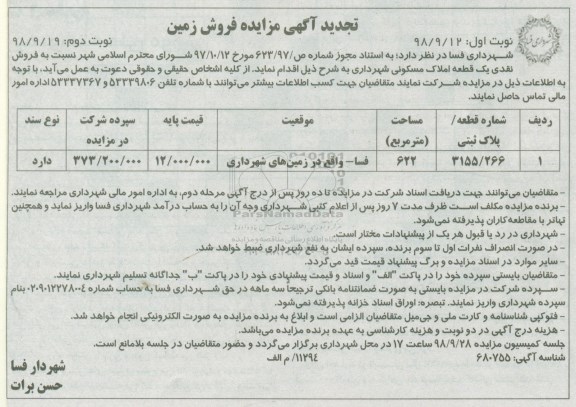 تجدید آگهی مزایده فروش زمین
نوبت اول: ۹۸/۹/۱۲
نوبت دوم: ۹۸/۹/۱۹
شهرداری فسا در نظر دارد: به استناد مجوز شماره ص/۶۲۳/۹۷ مورخ ۹۷/۱۰/۱۲ شورای محترم اسلامی شهر نسبت به فروش
نقدی یک قطعه املاک مسکونی شهرداری به شرح ذیل اقدام نماید. از کلیه اشخاص حقیقی و حقوقی دعوت به عمل می‌آید، با توجه
به اطلاعات ذیل در مزایده شرکت نمایند متقاضیان جهت کسب اطلاعات بیشتر می‌توانند با شماره تلفن ۵۳۳۳۹۸۰۶ و ۵۳۳۳۷۳۶۷ اداره امور
مالی تماس حاصل نمایند.
ردیف شماره قطعه/ پلاک ثبتی مساحت (مترمربع) موقعیت قیمت پایه سپرده شرکت در مزایده نوع سند
۱ ۳۱۵۵/۲۶۶ ۶۲۲ فسا- واقع در زمین‌های شهرداری ۱۲/۰۰۰/۰۰۰ ۳۷۳/۲۰۰/۰۰۰ دارد
- متقاضیان می‌توانند جهت دریافت اسناد شرکت در مزایده تا ده روز پس از درج آگهی مرحله دوم، به اداره امور مالی شهرداری مراجعه نمایند.
- برنده مزایده مکلف است ظرف مدت ۷ روز پس از اعلام کتبی شهرداری وجه آن را به حساب درآمد شهرداری فسا واریز نماید و همچنین
تهاتر با مقاطعه‌کاران پذیرفته نمی‌شود.
- شهرداری در رد یا قبول هر یک از پیشنهادات مختار است.
- در صورت انصراف نفرات اول تا سوم برنده، سپرده ایشان به نفع شهرداری ضبط خواهد شد.
- سایر موارد در اسناد مزایده و برگ پیشنهاد قیمت قید می‌گردد.
- متقاضیان بایستی سپرده خود را در پاکت "الف" و اسناد و قیمت پیشنهادی خود را در پاکت "ب" جداگانه تسلیم شهرداری نمایند.
- سپرده شرکت در مزایده بایستی به صورت ضمانتنامه بانکی ترجیحاً سه ماهه در حق شهرداری فسا به حساب شماره ۰۲۰۹۰۱۲۲۷۸۰۰۴ بنام
سپرده شهرداری واریز نمایند. تبصره: اوراق اسناد خزانه پذیرفته نمی‌شود.
- فتوکپی شناسنامه و کارت ملی و جی‌میل متقاضیان الزامی است و ابلاغ به برنده مزایده به صورت الکترونیکی انجام خواهد شد.
- هزینه درج آگهی در دو نوبت و هزینه کارشناسی به عهده برنده مزایده می‌باشد.
جلسه کمیسیون مزایده ۹۸/۹/۲۸ ساعت ۱۷ در محل شهرداری برگزار می‌گردد و حضور متقاضیان در جلسه بلامانع است.
شناسه آگهی: ۶۸۰۷۵۵
۱۱۲۹۴/ م الف
شهردار فسا
حسن برات
ParsNamadData